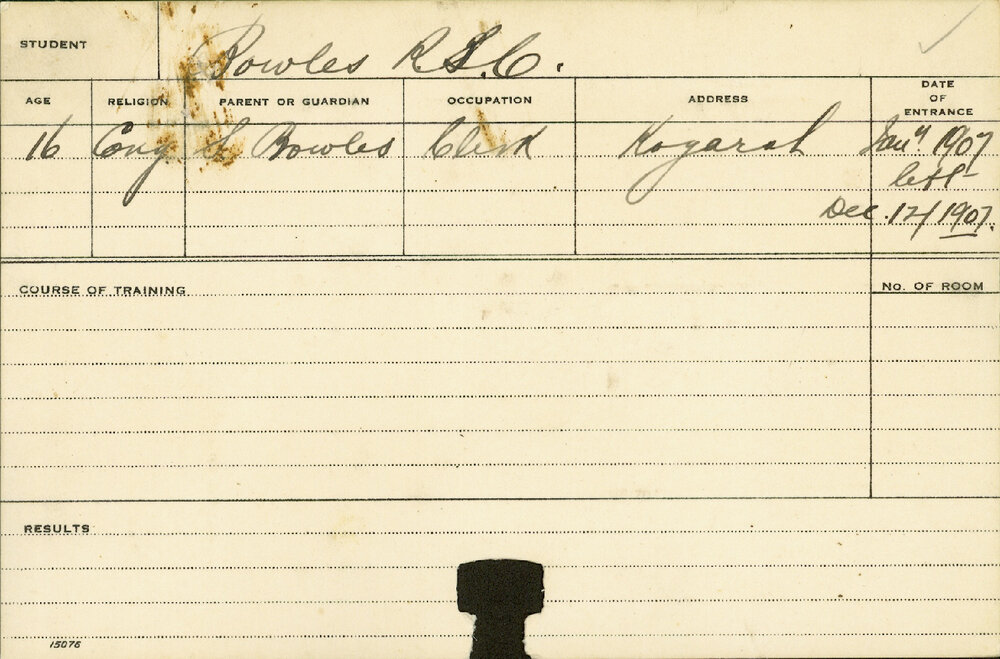 STUDENT Bowles R.S.C.
AGE RELIGION PARENT OR GUARDIAN OCCUPATION ADDRESS DATE OF ENTRANCE
16 Cong Bowles Clerk Kogarah Jany 1907
left
Dec. 17/1907.
COURSE OF TRAINING No. OF ROOM
RESULTS
15076